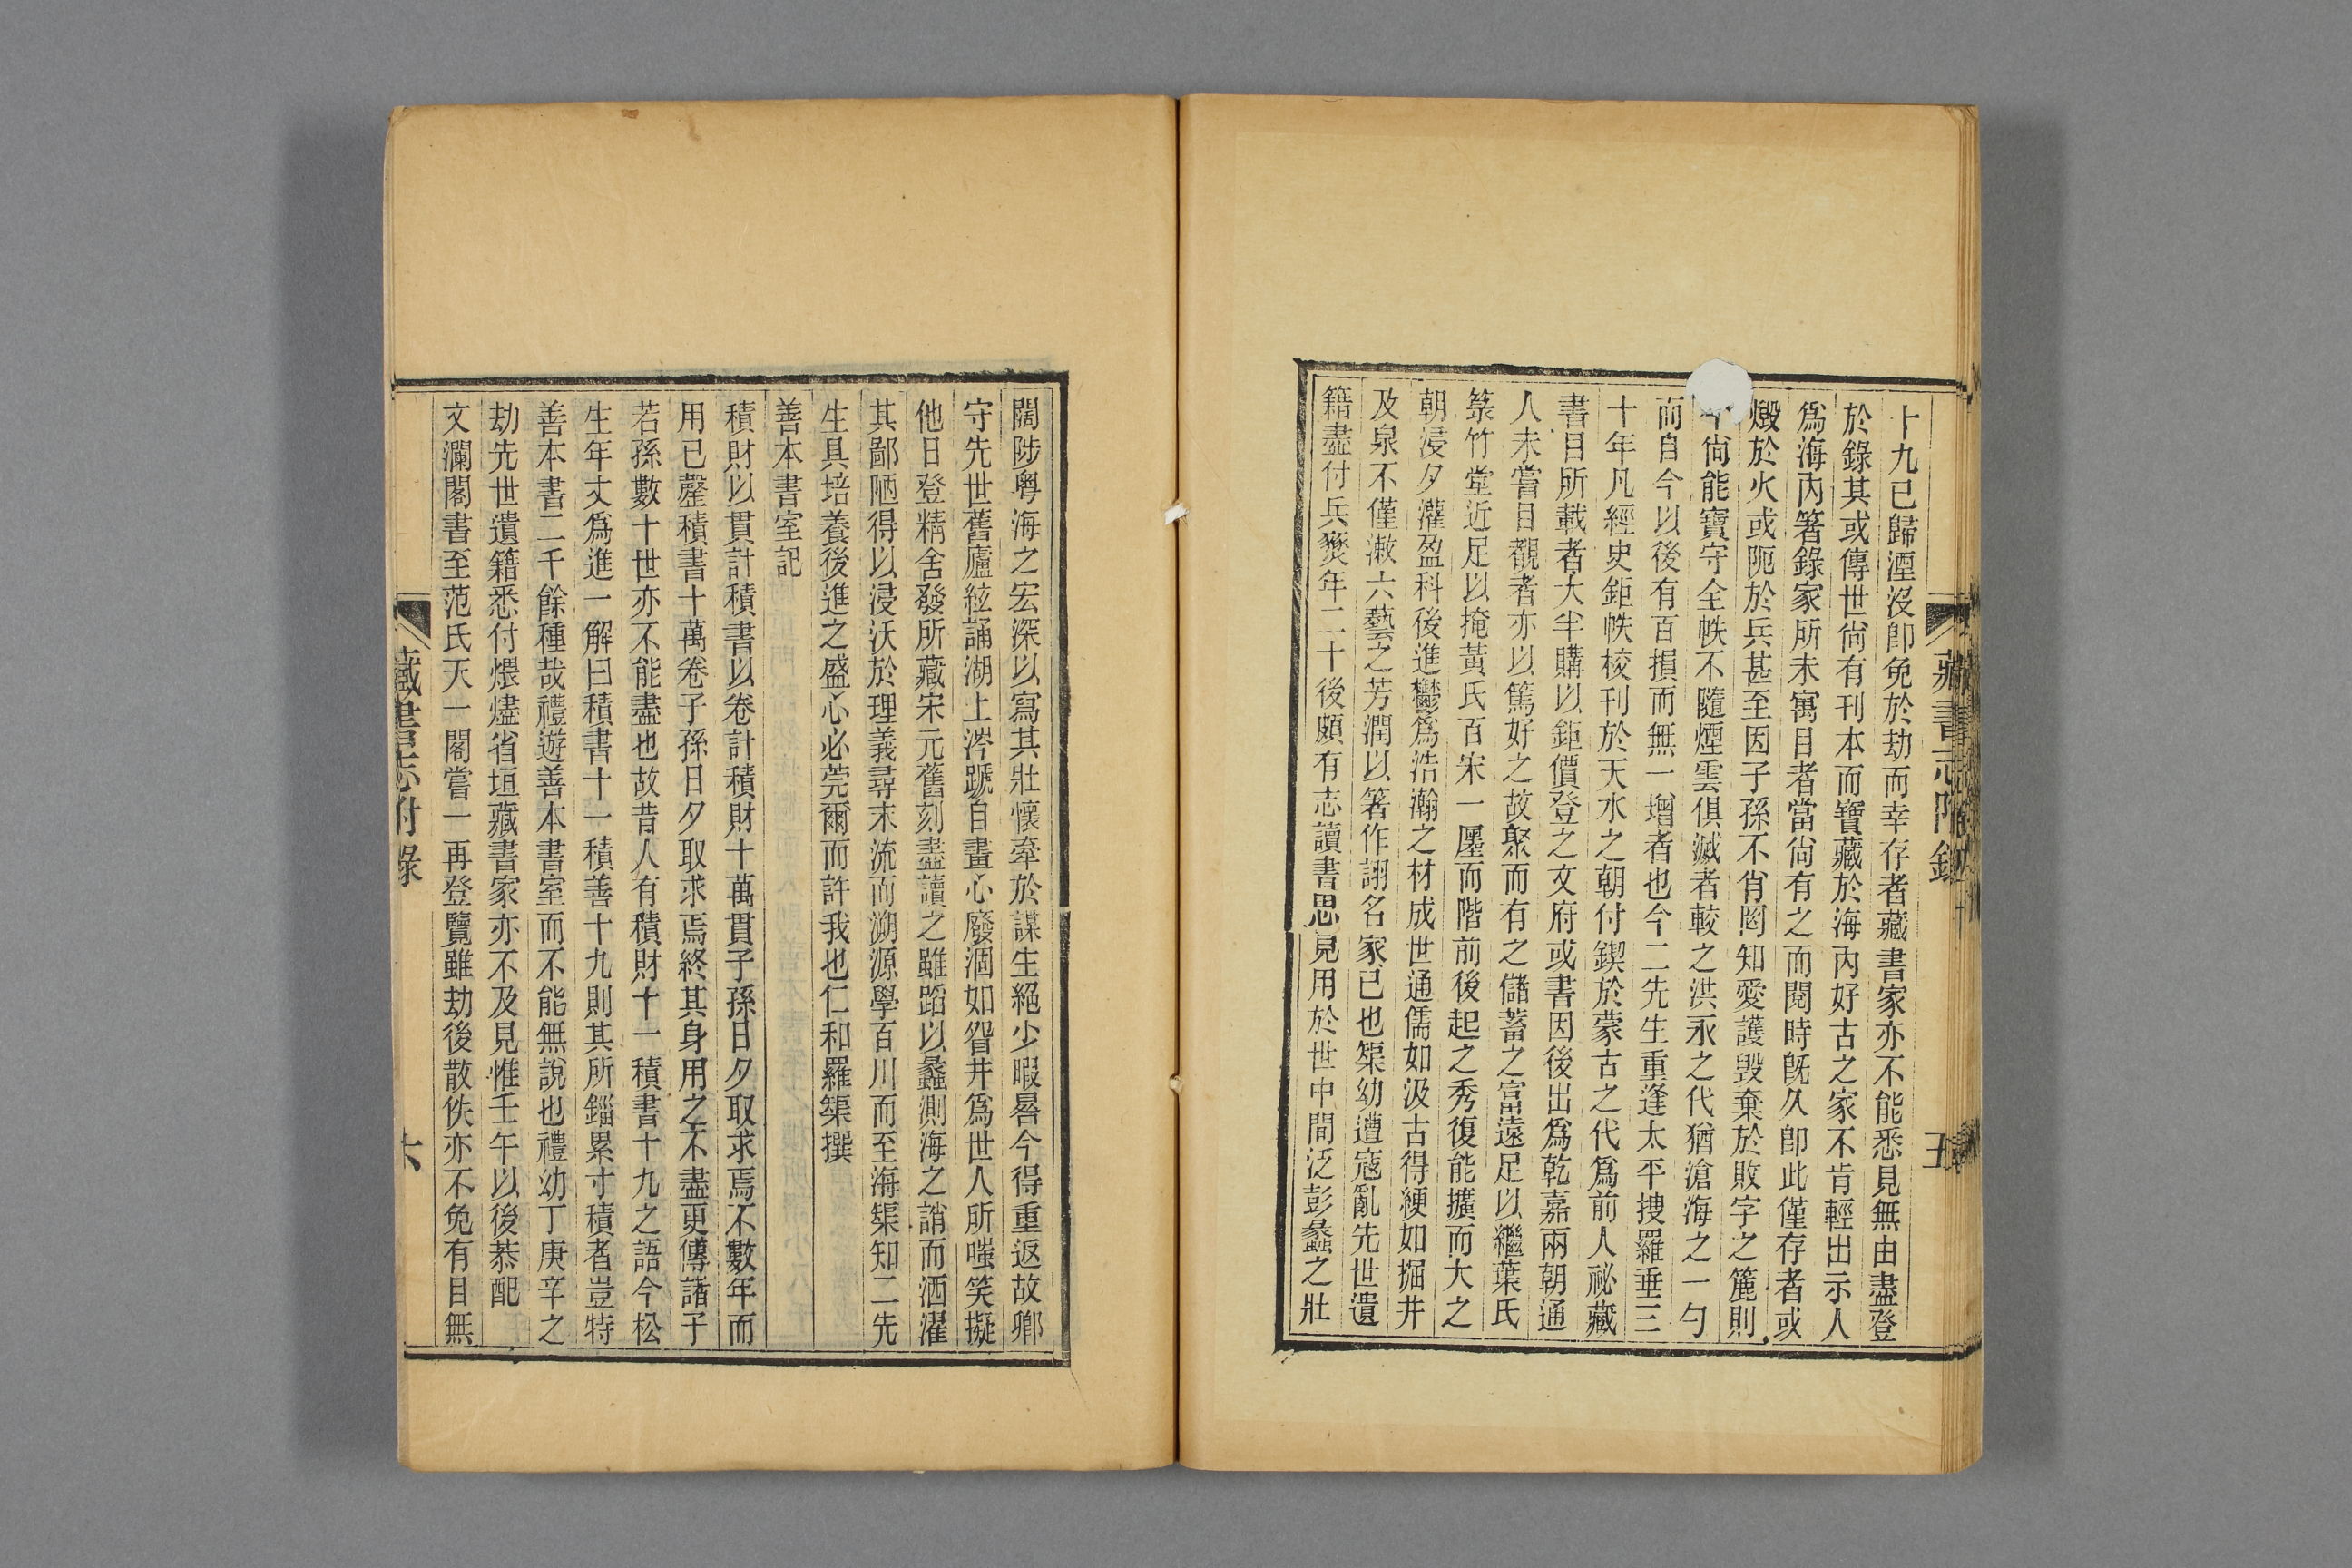 藏書志附錄
五
十九已歸湮沒卽免於劫而幸存者藏書家亦不能悉見無由盡登
於錄其或傳世尙有刊本而寶藏於海內好古之家不肯輕出示人
爲海內箸錄家所未寓目者當尙有之而閱時旣久卽此僅存者或
燬於火或阨於兵甚至因子孫不肖罔知愛護毀棄於敗字之簏則
尙能寶守全帙不隨煙雲俱滅者較之洪永之代猶滄海之一勺
而自今以後有百損而無一增者也今二先生重逢太平搜羅垂三
十年凡經史鉅帙校刊於天水之朝付鍥於蒙古之代爲前人祕藏
書目所載者大半購以鉅價登之文府或書因後出爲乾嘉兩朝通
人未嘗目覩者亦以篤好之故聚而有之儲蓄之富遠足以繼葉氏
箓竹堂近足以掩黃氏百宋一廛而階前後起之秀復能擴而大之
朝浸夕灌盈科後進鬱爲浩瀚之材成世通儒如汲古得綆如掘井
及泉不僅漱六藝之芳潤以箸作詡名家已也榘幼遭寇亂先世遺
籍盡付兵燹年二十後頗有志讀書思見用於世中間泛彭蠡之壯
闊陟粵海之宏深以寫其壯懷牽於謀生絕少暇晷今得重返故鄕
守先世舊廬絃誦湖上涔蹏自畫心廢涸如眢井爲世人所嗤笑擬
他日登精舍發所藏宋元舊刻盡讀之雖蹈以蠡測海之誚而洒濯
其鄙陋得以浸沃於理義尋末流而溯源學百川而至海榘知二先
生具培養後進之盛心必莞爾而許我也仁和羅榘撰
善本書室記
積財以貫計積書以卷計積財十萬貫子孫日夕取求焉不數年而
用已罄積書十萬卷子孫日夕取求焉終其身用之不盡更傳諸子
若孫數十世亦不能盡也故昔人有積財十一積書十九之語今松
生年丈爲進一解曰積書十一積善十九則其所錙累寸積者豈特
善本書二千餘種哉禮遊善本書室而不能無說也禮幼丁庚辛之
劫先世遺籍悉付煨燼省垣藏書家亦不及見惟壬午以後恭配
文瀾閣書至范氏天一閣嘗一再登覽雖劫後散佚亦不免有目無
藏書志附錄
六